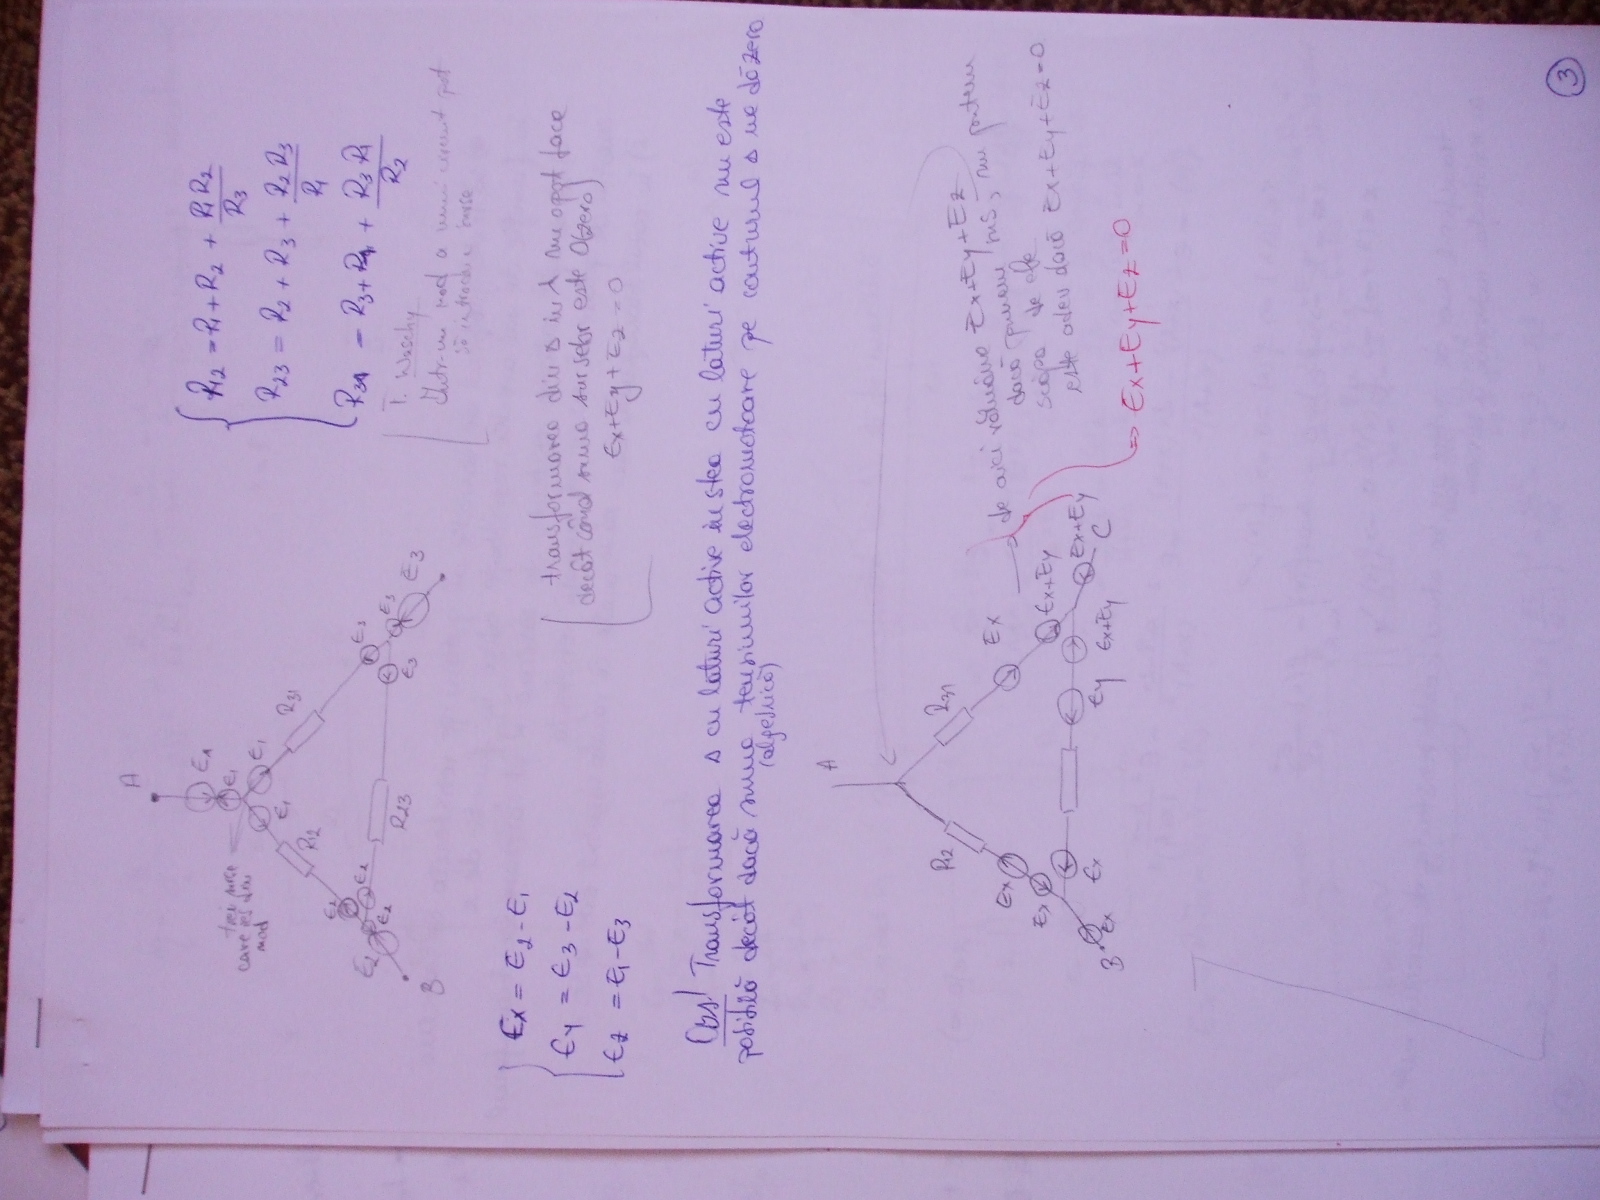 A
E1
E1
trei surse
care ies din
nod
E1
E1
R12
R31
E2
E2
E2
E2
R23
E3
E3
E3
E3
B
{ R12 = R1 + R2 + R1 R2 / R3
R23 = R2 + R3 + R2 R3 / R1
R31 = R3 + R1 + R3 R1 / R2
T. Waschy
Într-un nod a unui circuit pot
să introduc surse
{ Ex = E2 - E1
Ey = E3 - E2
Ez = E1 - E3
transformarea din Δ in λ nu o pot face
decât când suma surselor este 0(zero)
Ex+Ey+Ez=0
Obs! Transformarea Δ cu laturi active in stea cu laturi active nu este
posibilă decât dacă suma tensiunilor electromotoare pe conturul Δ ne dă zero
(algebrică)
A
R12
R31
Ex
Ex
Ex
Ex+Ey
Ex+Ey
Ex
Ey
Ex+Ey
B
Ex
C
de aici rămâne Ex+Ey+Ez
dacă punem sus, nu putem
scăpa de ele
este adev dacă Ex+Ey+Ez=0
=> Ex+Ey+Ez=0
3